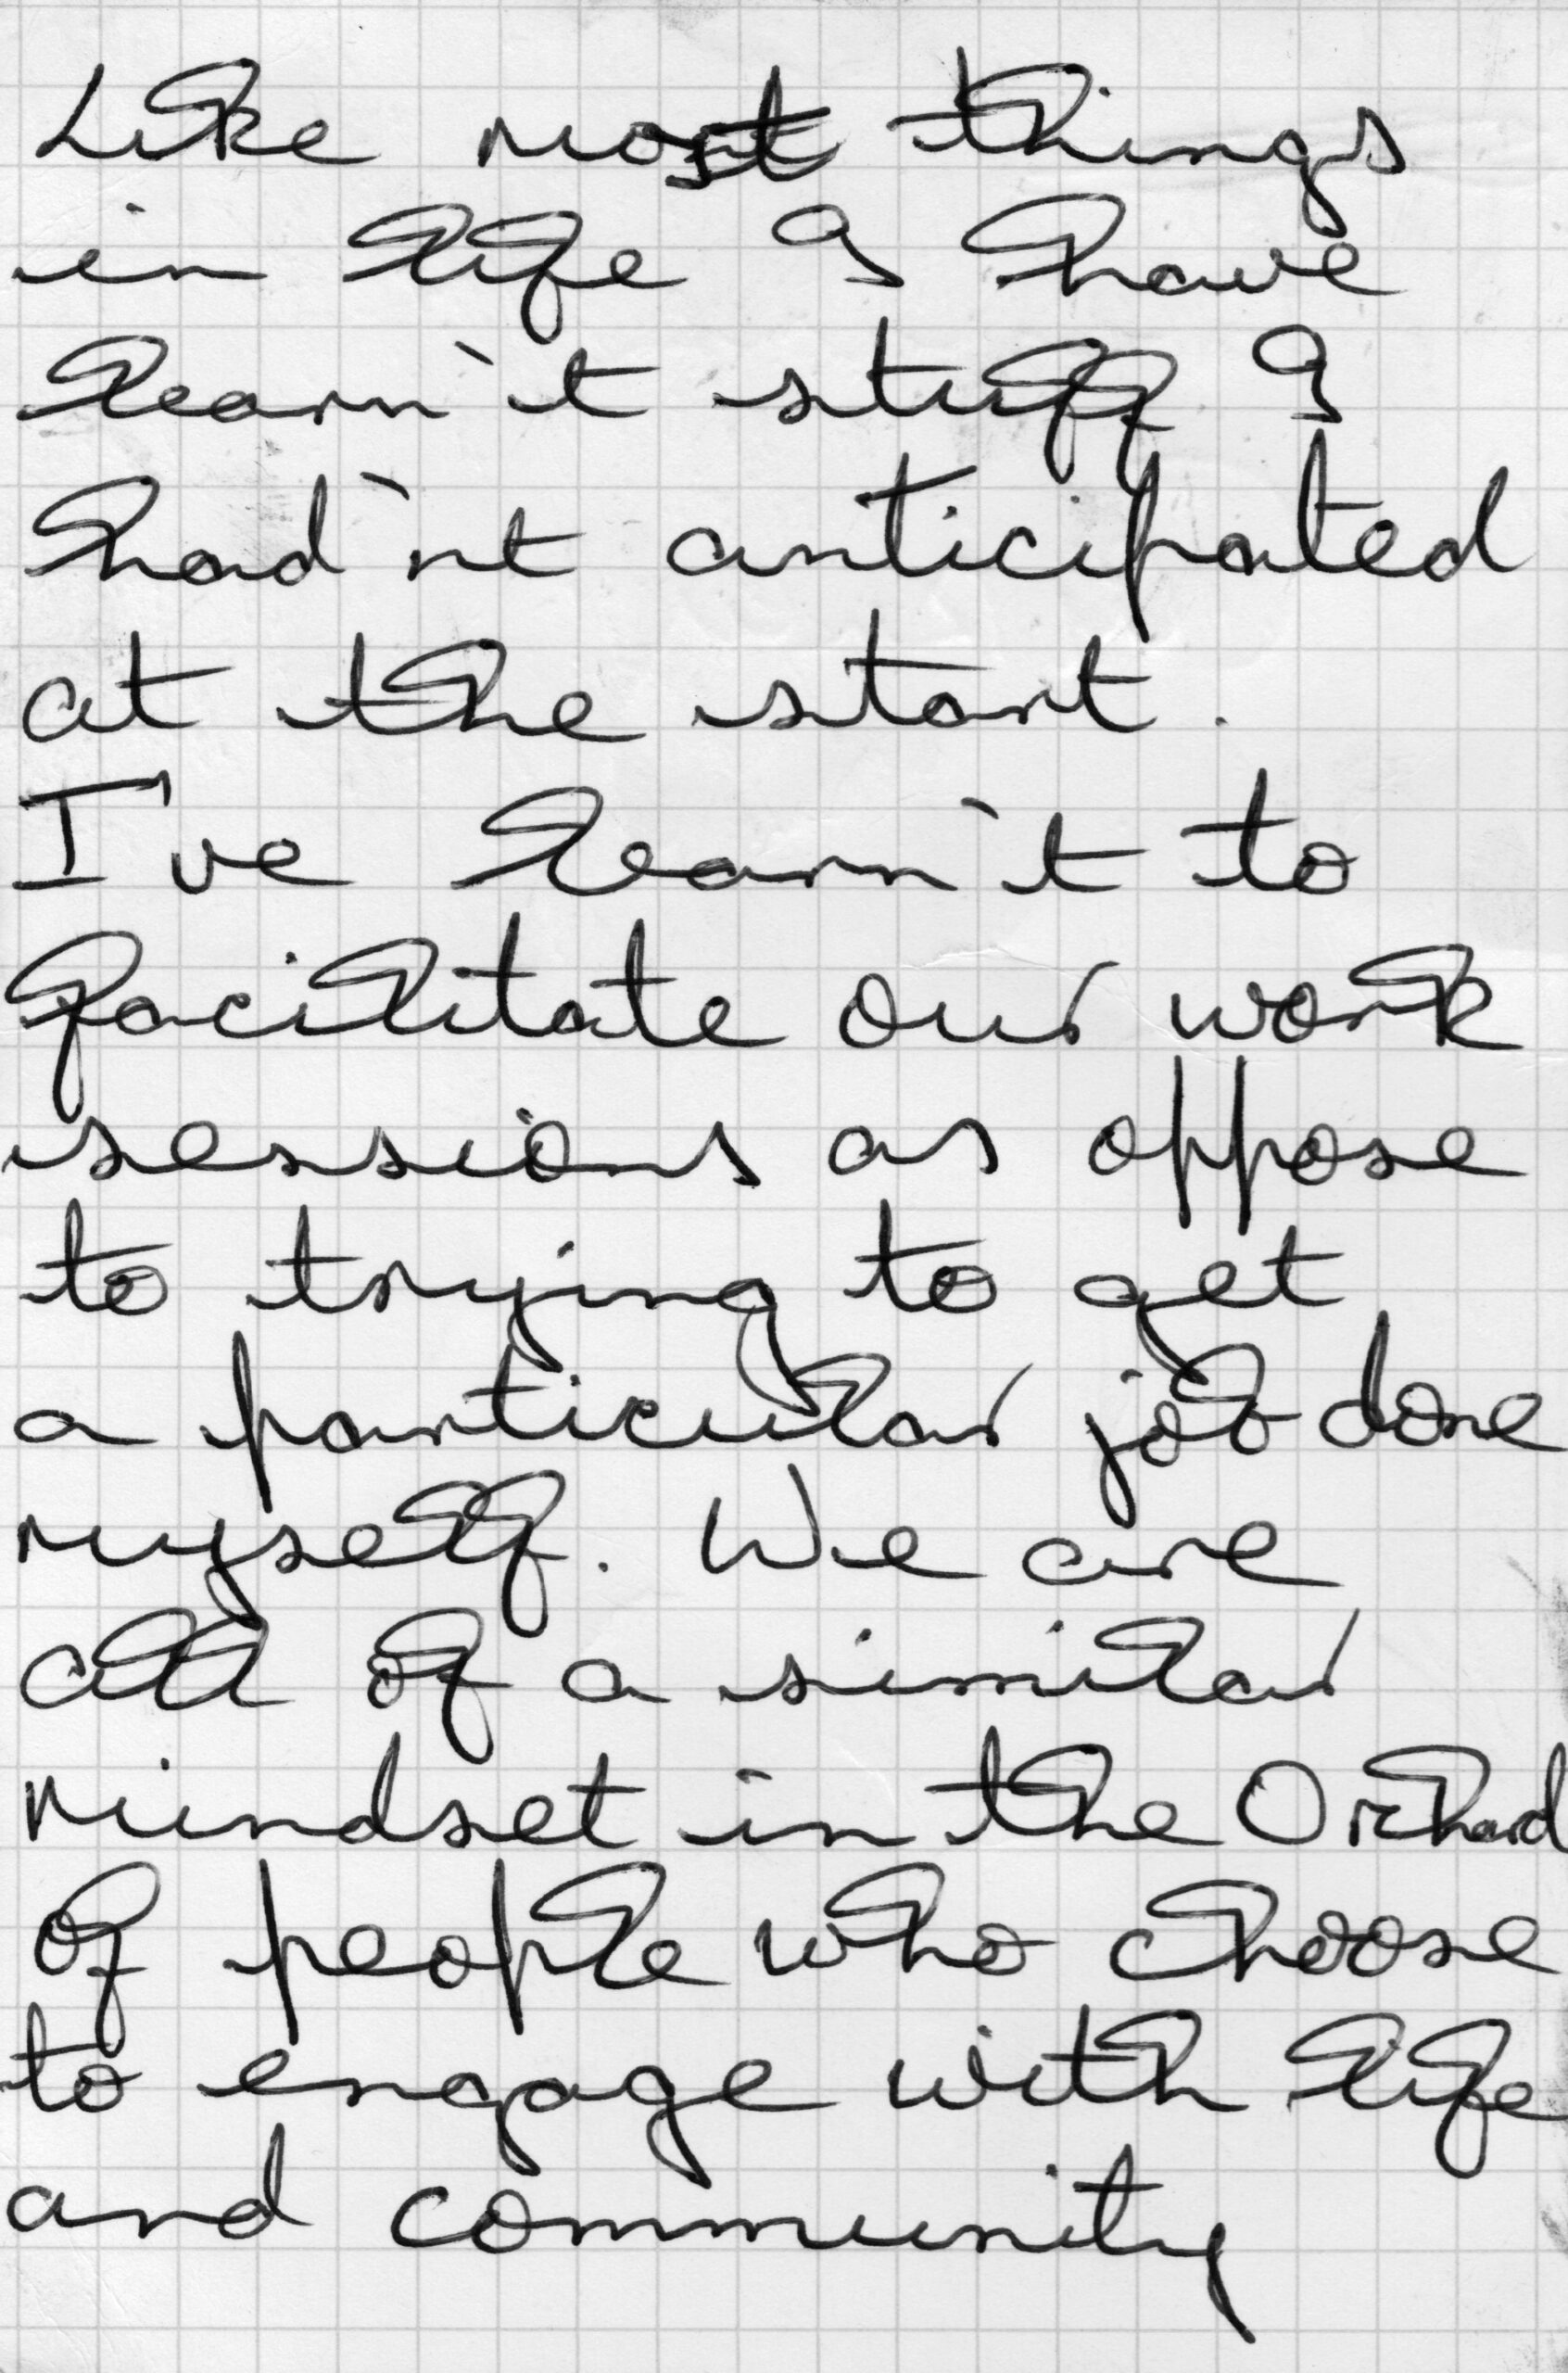 Like most things
in life I have
learn't stuff I
had'nt anticipated
at the start.
I've learn't to
facilitate our work
sessions as oppose
to trying to get
a particular job done
myself. We are
all of a similar
mindset in the Orchard
of people who choose
to engage with life
and community